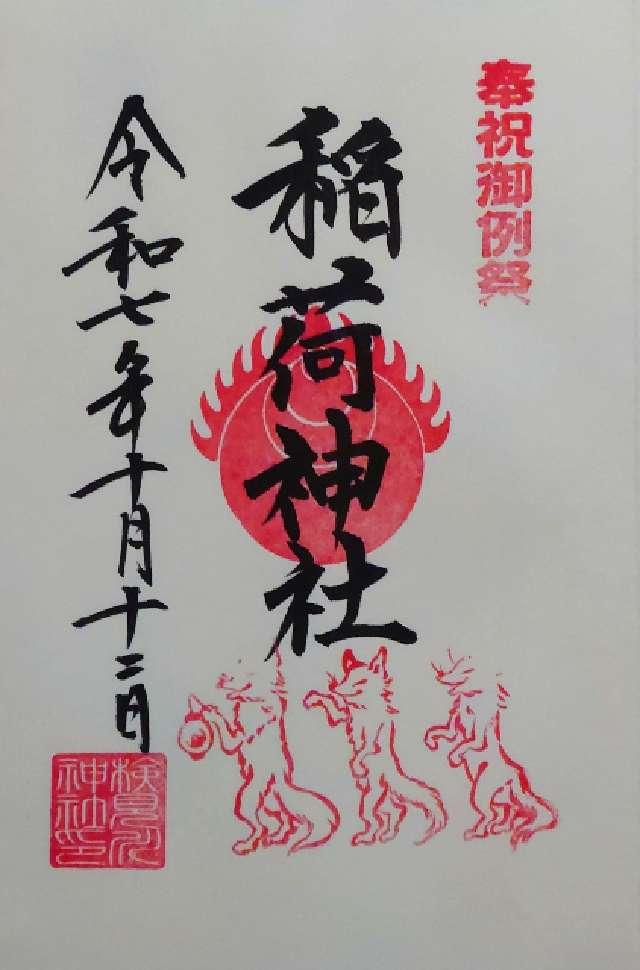 奉祝御例祭
稲荷神社
令和七年十月十二日
検見川
神社印